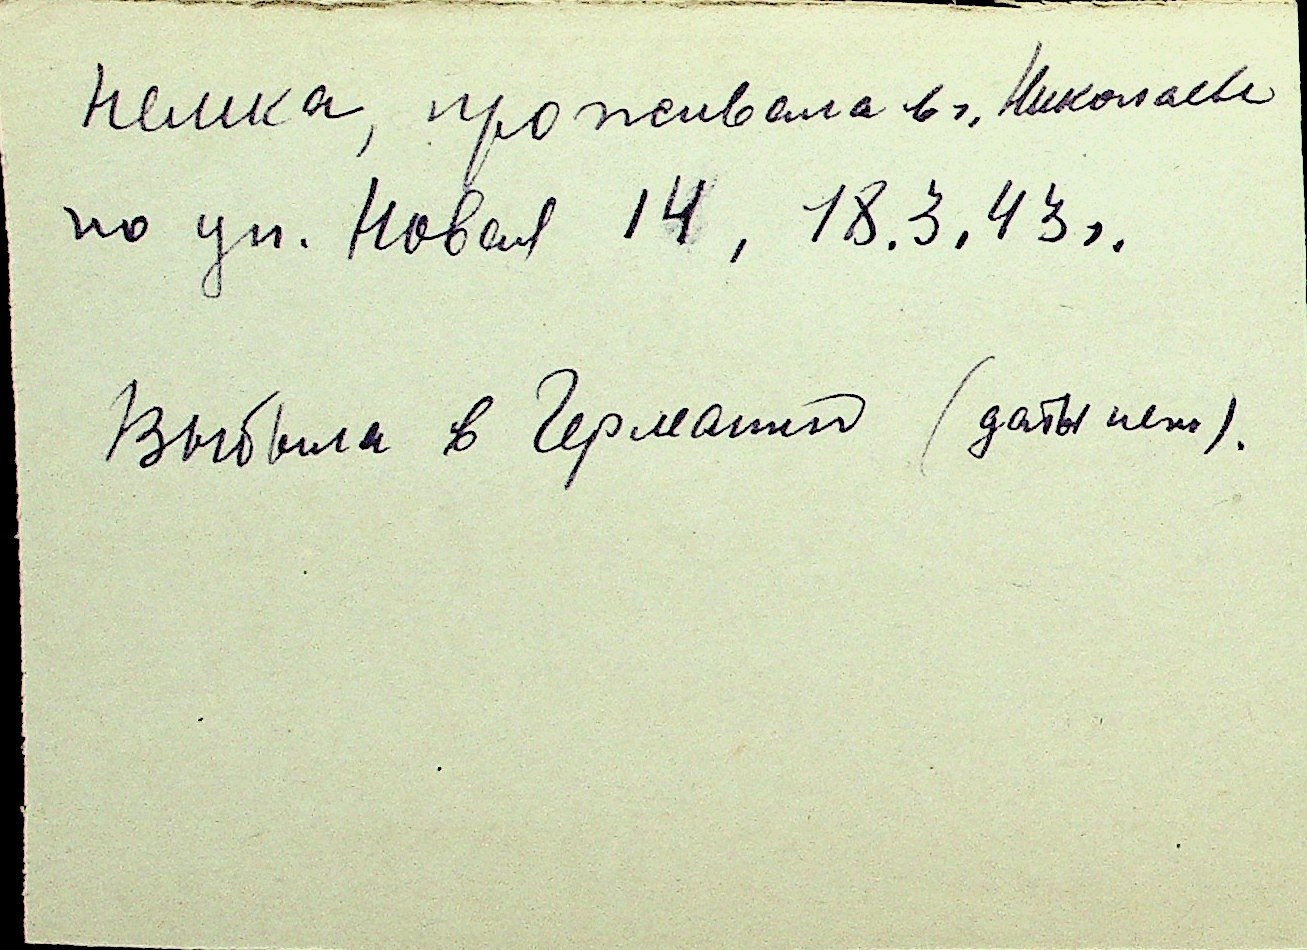 немка, проживала в г. Николаеве
по ул. Новая 14, 18.3.43 г.
Выбыла в Германию (даты нет).